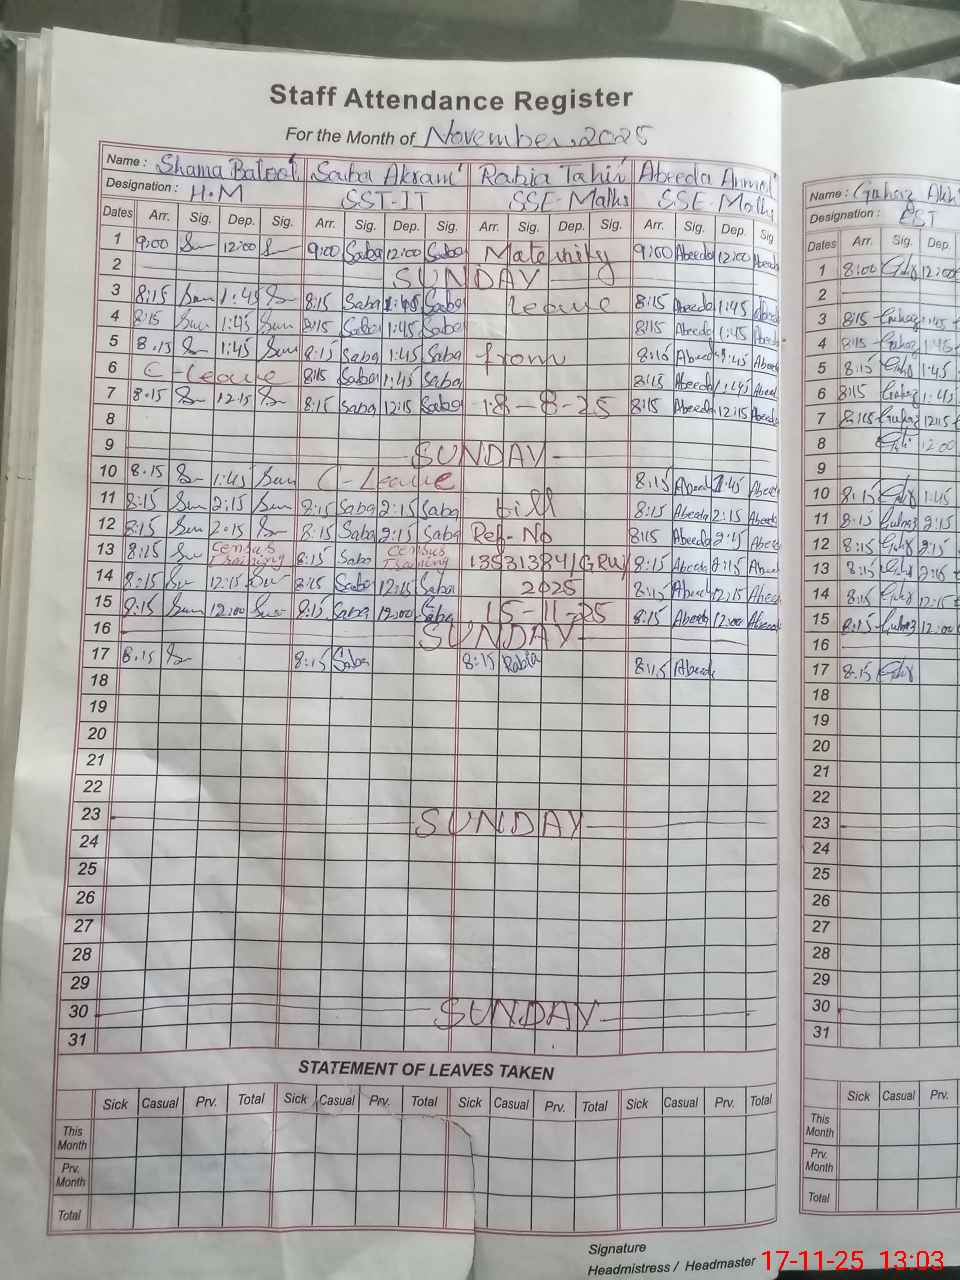 Staff Attendance Register
For the Month of November, 2025
Name : Shama Batool Saba Akram Rabia Tahir Abeeda Ahmed Name :
Designation : H.M SST-IT SSE-Maths SSE-Maths Designation : EST
Dates Arr. Sig. Dep. Sig. Arr. Sig. Dep. Sig. Arr. Sig. Dep. Sig. Arr. Sig. Dep. Sig Dates Arr. Sig. Dep.
1 9:00 12:00 9:00 Saba 12:00 Saba Maternity 9:00 Abeeda 12:00 Abeeda 1 8:00 12:00
2 SUNDAY 2
3 8:15 1:45 8:15 Saba 1:45 Saba leave 8:15 Abeeda 1:45 Abeeda 3 8:15 1:45
4 8:15 1:45 8:15 Saba 1:45 Saba 8:15 Abeeda 1:45 Abeeda 4 8:15 1:45
5 8:15 1:45 8:15 Saba 1:45 Saba from 8:15 Abeeda 1:45 Abeeda 5 8:15 1:45
6 C-Leave 8:15 Saba 1:45 Saba 8:15 Abeeda 1:45 Abeed 6 8:15 1:45
7 8:15 12:15 8:15 Saba 12:15 Saba 18-8-25 8:15 Abeeda 12:15 Abeeda 7 8:15 12:15
8 8 12:00
9 SUNDAY 9
10 8.15 1:45 C-Leave 8:15 Abeed 1:45 Abeeda 10 8:15 1:45
11 8:15 2:15 8:15 Saba 2:15 Saba till 8:15 Abeeda 2:15 Abeeda 11 8:15 2:15
12 8:15 2:15 8:15 Saba 2:15 Saba Ref-No 8:15 Abeeda 2:15 Abeed 12 8:15 2:15
13 8:15 Census Training 8:15 Saba Census Training 13531384/GRW/ 8:15 Abeeda 2:15 Abeed 13 8:15 2:15
14 8:15 12:15 8:15 Saba 12:15 Saba 2025 8:15 Abeeda 12:15 Abeed 14 8:15 12:15
15 8:15 12:00 8:15 Saba 12:00 Saba 15-11-25 8:15 Abeeda 12:00 Abeeda 15 8:15 12:00
16 SUNDAY 16
17 8.15 8:15 Saba 8:15 Rabia 8:15 Abeeda 17 8:15
18 18
19 19
20 20
21 21
22 22
23 SUNDAY 23
24 24
25 25
26 26
27 27
28 28
29 29
30 SUNDAY 30
31 31
STATEMENT OF LEAVES TAKEN
Sick Casual Prv. Total Sick Casual Prv. Total Sick Casual Prv. Total Sick Casual Prv. Total Sick Casual Prv.
This Month This Month
Prv. Month Prv. Month
Total Total
Signature
Headmistress / Headmaster
17-11-25 13:03